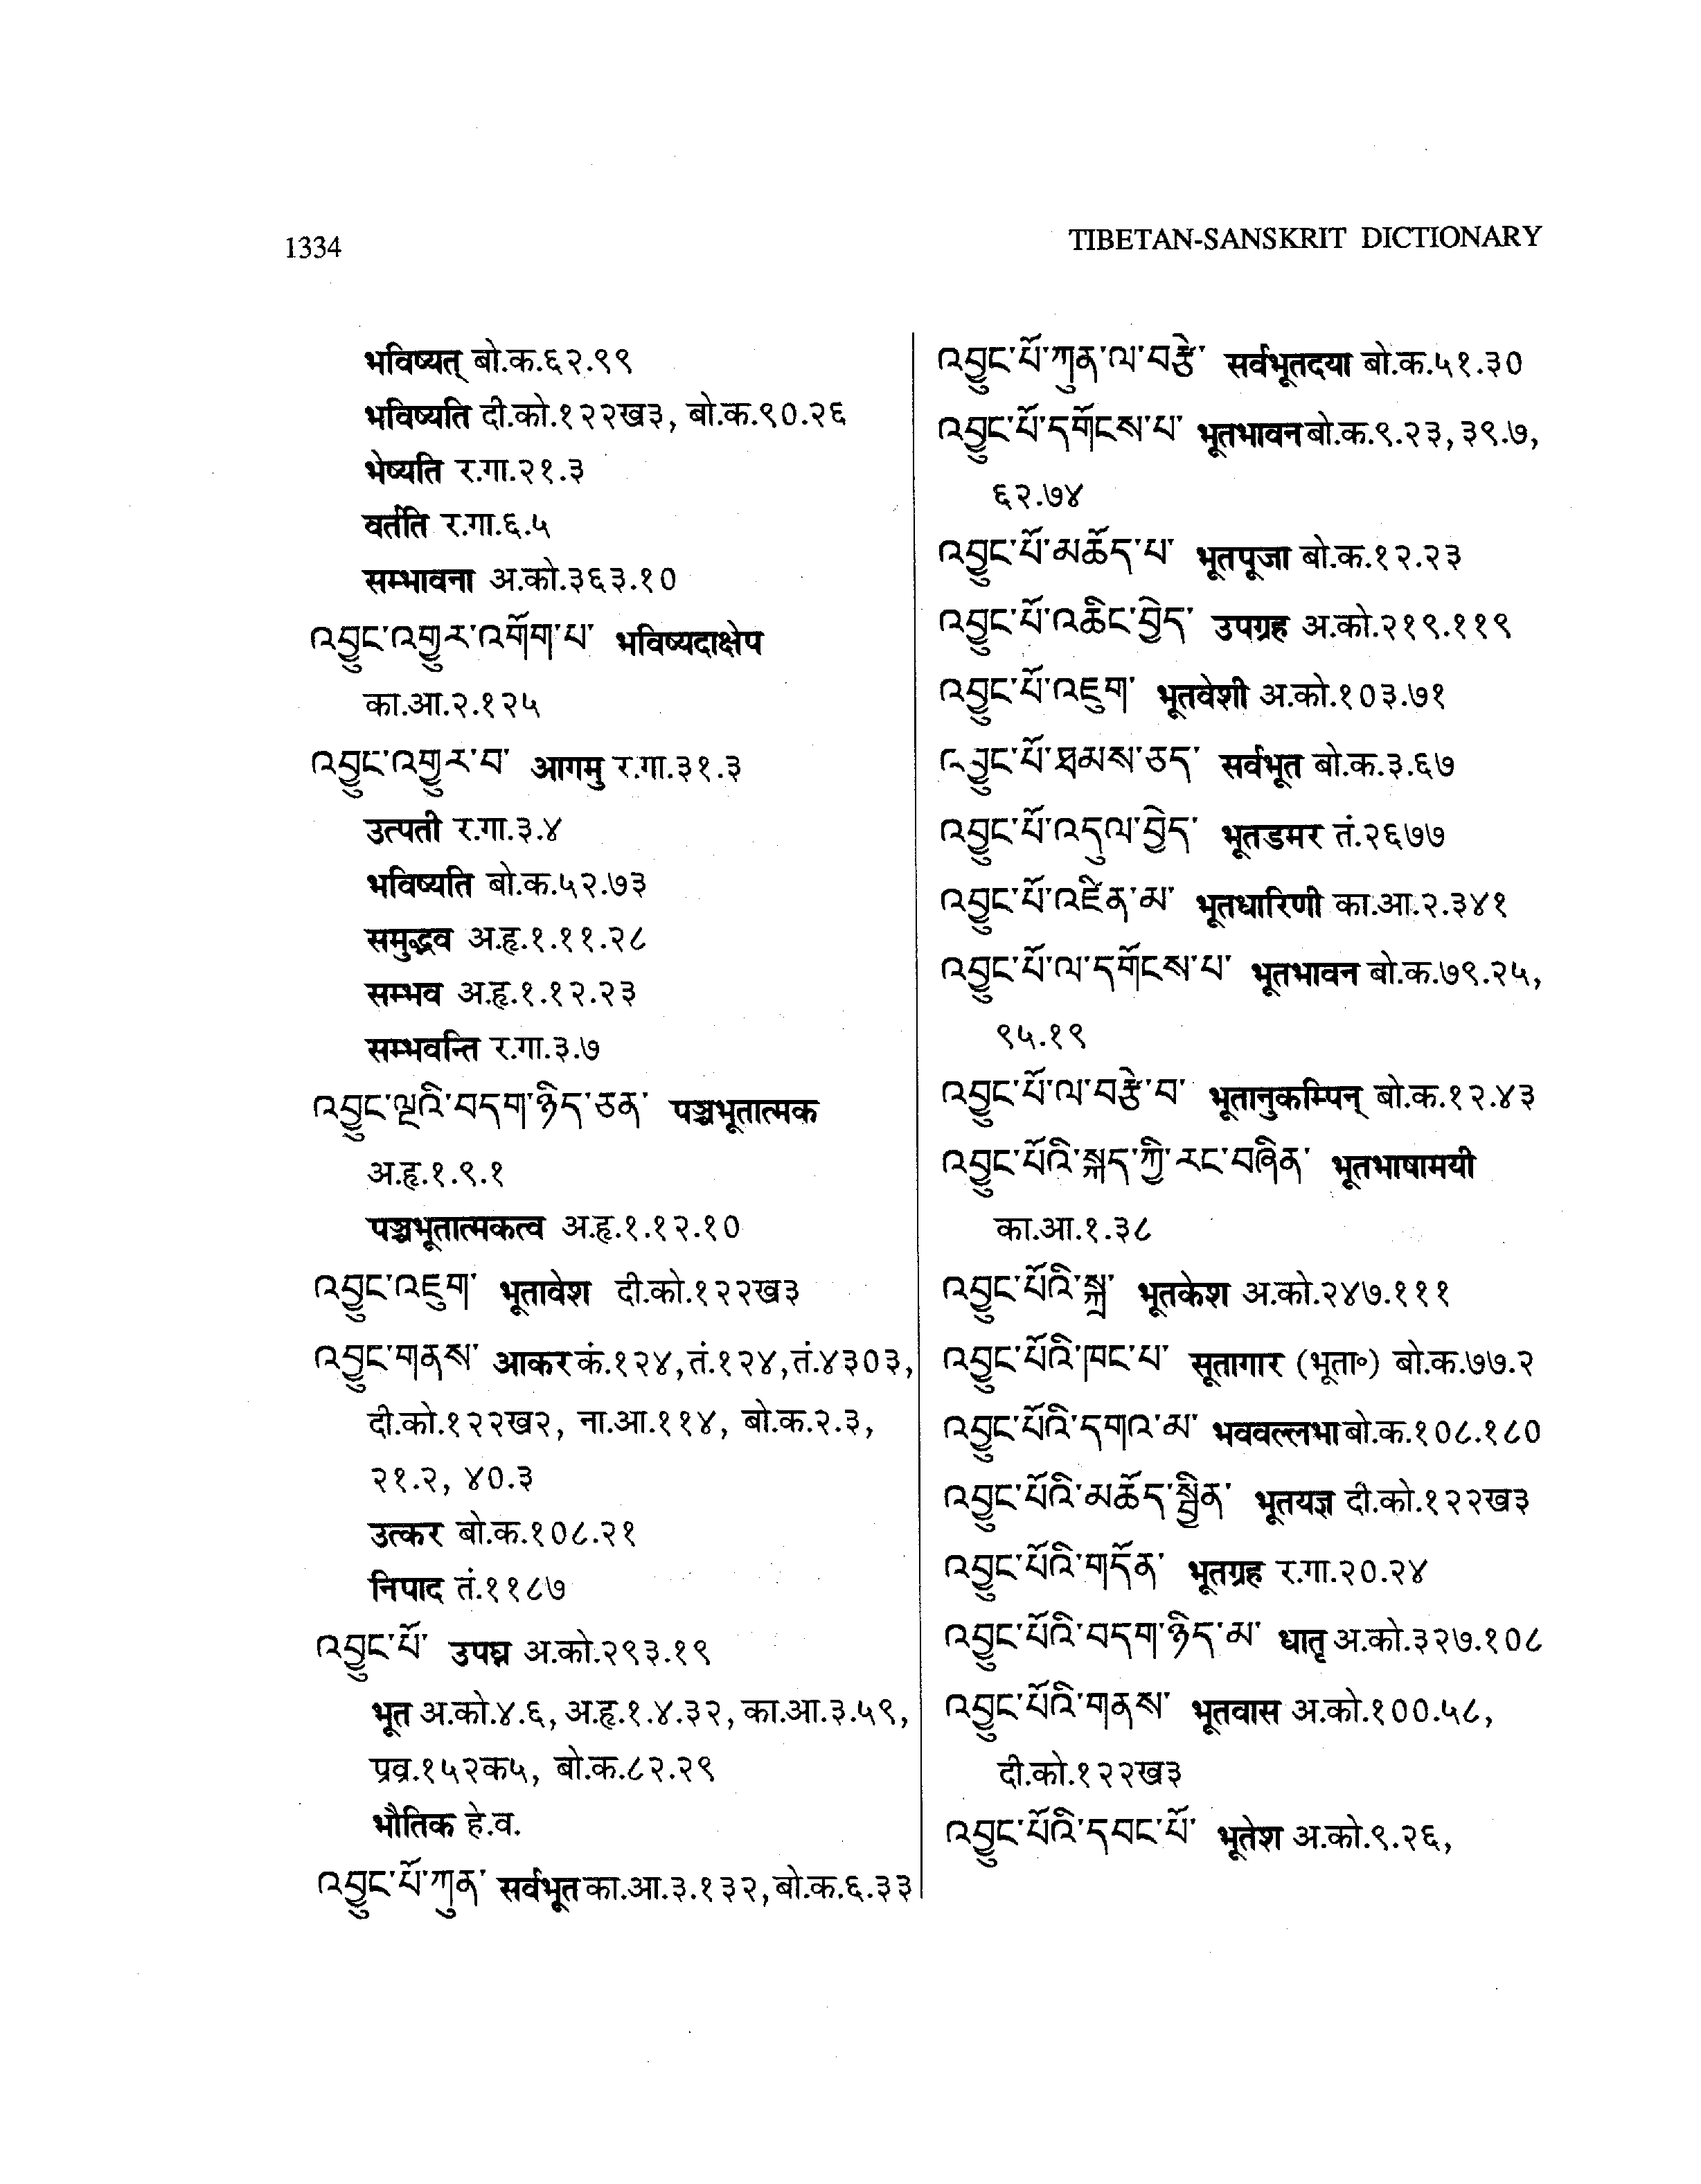 1334
TIBETAN-SANSKRIT DICTIONARY
भविष्यत् बो.क.६२.९९
भविष्यति दी.को.१२२ख३, बो.क.९०.२६
भेष्यति र.गा.२१.३
वर्तति र.गा.६.५
सम्भावना अ.को.३६३.१०
འབྱུང་འགྱུར་འགོག་པ་ भविष्यदाक्षेप
का.आ.२.१२५
འབྱུང་འགྱུར་བ་ आगमु र.गा.३१.३
उत्पती र.गा.३.४
भविष्यति बो.क.५२.७३
समुद्भव अ.हृ.१.११.२८
सम्भव अ.हृ.१.१२.२३
सम्भवन्ति र.गा.३.७
འབྱུང་ལྔའི་བདག་ཉིད་ཅན་ पञ्चभूतात्मक
अ.हृ.१.९.१
पञ्चभूतात्मकत्व अ.हृ.१.१२.१०
འབྱུང་འཇུག་ भूतावेश दी.को.१२२ख३
འབྱུང་གནས་ आकर कं.१२४, तं.१२४, तं.४३०३,
दी.को.१२२ख२, ना.आ.११४, बो.क.२.३,
२१.२, ४०.३
उत्कर बो.क.१०८.२१
निपाद तं.११८७
འབྱུང་པོ་ उपघ्न अ.को.२९३.१९
भूत अ.को.४.६, अ.हृ.१.४.३२, का.आ.३.५९,
प्रव्र.१५२क५, बो.क.८२.२९
भौतिक हे.व.
འབྱུང་པོ་ཀུན་ सर्वभूत का.आ.३.१३२, बो.क.६.३३
འབྱུང་པོ་ཀུན་ལ་བརྩེ་ सर्वभूतदया बो.क.५१.३०
འབྱུང་པོ་དགོངས་པ་ भूतभावन बो.क.९.२३, ३९.७,
६२.७४
འབྱུང་པོ་མཆོད་པ་ भूतपूजा बो.क.१२.२३
འབྱུང་པོ་འཆིང་བྱེད་ उपग्रह अ.को.२१९.११९
འབྱུང་པོ་འཇུག་ भूतवेशी अ.को.१०३.७१
འབྱུང་པོ་ཐམས་ཅད་ सर्वभूत बो.क.३.६७
འབྱུང་པོ་འདུལ་བྱེད་ भूतडमर तं.२६७७
འབྱུང་པོ་འཛིན་མ་ भूतधारिणी का.आ.२.३४१
འབྱུང་པོ་ལ་དགོངས་པ་ भूतभावन बो.क.७९.२५,
९५.१९
འབྱུང་པོ་ལ་བརྩེ་བ་ भूतानुकम्पिन् बो.क.१२.४३
འབྱུང་པོའི་སྐད་ཀྱི་རང་བཞིན་ भूतभाषामयी
का.आ.१.३८
འབྱུང་པོའི་སྐྲ་ भूतकेश अ.को.२४७.१११
འབྱུང་པོའི་ཁང་པ་ सूतागार (भूता॰) बो.क.७७.२
འབྱུང་པོའི་དགའ་མ་ भववल्लभा बो.क.१०८.१८०
འབྱུང་པོའི་མཆོད་སྦྱིན་ भूतयज्ञ दी.को.१२२ख३
འབྱུང་པོའི་གདོན་ भूतग्रह र.गा.२०.२४
འབྱུང་པོའི་བདག་ཉིད་མ་ धातृ अ.को.३२७.१०८
འབྱུང་པོའི་གནས་ भूतवास अ.को.१००.५८,
दी.को.१२२ख३
འབྱུང་པོའི་དབང་པོ་ भूतेश अ.को.९.२६,